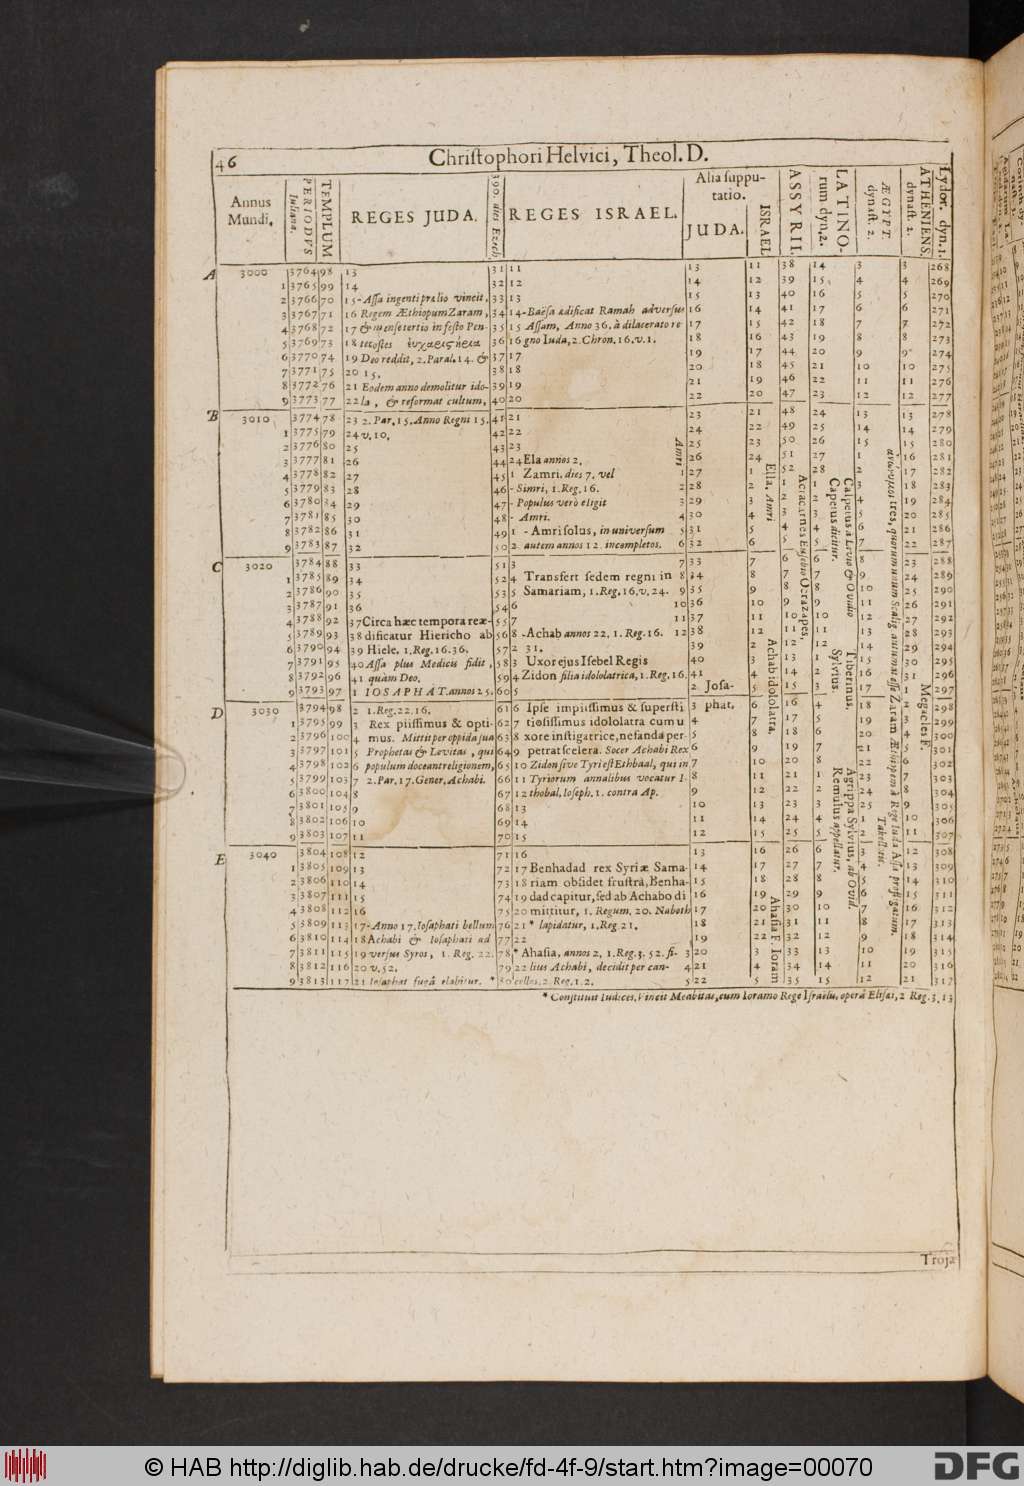 46 Christophori Helvici, Theol. D.
Annus Mundi. PERIODVS Iuliana. TEMPLUM REGES JUDA. 390. dies Ezech REGES ISRAEL. Alia suppu-tatio. JUDA. ISRAEL ASSYRII. LATINO-rum dyn. 2. ÆGYPT. dynast. 2. ATHENIENS. dynast. 2. Lydor. dyn. 1.
A 3000 3764 98 13 31 11 13 11 38 14 3 3 268
1 3765 99 14 32 12 14 12 39 15 4 4 269
2 3766 70 15 - Assa ingenti prælio vincit, 33 13 15 13 40 16 5 5 270
3 3767 71 16 Regem Æthiopum Zaram, 34 14 - Baësa ædificat Ramah adversus 16 14 41 17 6 6 271
4 3768 72 17 & mense tertio in festo Pen- 35 15 Assam, Anno 36. à dilacerato re- 17 15 42 18 7 7 272
5 3769 73 18 tecostes εὐχαριϛήρια 36 16 gno Iuda, 2. Chron. 16. v. 1. 18 16 43 19 8 8 273
6 3770 74 19 Deo reddit, 2. Paral. 14. & 37 17 19 17 44 20 9 9 274
7 3771 75 20 15. 38 18 20 18 45 21 10 10 275
8 3772 76 21 Eodem anno demolitur ido- 39 19 21 19 46 22 11 11 276
9 3773 77 22 la, & reformat cultum, 40 20 22 20 47 23 12 12 277
B 3010 3774 78 23 2. Par. 15. Anno Regni 15. 41 21 23 21 48 24 13 13 278
1 3775 79 24 v. 10. 42 22 24 22 49 25 14 14 279
2 3776 80 25 43 23 25 23 50 26 15 15 280
3 3777 81 26 44 24 Ela annos 2. 26 24 51 27 1 16 281
4 3778 82 27 45 1 Zamri. dies 7. vel 1 27 1 52 28 2 17 282
5 3779 83 28 46 - Simri, 1. Reg. 16. 2 28 2 1 1 3 18 283
6 3780 84 29 47 - Populus verò eligit 3 29 3 2 2 4 19 284
7 3781 85 30 48 - Amri. 4 30 4 3 3 5 20 285
8 3782 86 31 49 1 - Amri solus, in universum 5 31 5 4 4 6 21 286
9 3783 87 32 50 2 autem annos 12. incompletos. 6 32 6 5 5 7 22 287
C 3020 3784 88 33 51 3 7 33 7 6 6 8 23 288
1 3785 89 34 52 4 Transfert sedem regni in 8 34 8 7 7 9 24 289
2 3786 90 35 53 5 Samariam, 1. Reg. 16. v. 24. 9 35 9 8 8 10 25 290
3 3787 91 36 54 6 10 36 10 9 9 11 26 291
4 3788 92 37 Circa hæc tempora reæ- 55 7 11 37 11 10 10 12 27 292
5 3789 93 38 dificatur Hiericho ab 56 8 - Achab annos 22. 1. Reg. 16. 12 38 12 11 11 13 28 293
6 3790 94 39 Hiele. 1. Reg. 16. 36. 57 2 31. 39 2 12 12 14 29 294
7 3791 95 40 Assa plus Medicis fidit, 58 3 Uxor ejus Isebel Regis 40 3 13 1 15 30 295
8 3792 96 41 quàm Deo. 59 4 Zidon filia idololatrica, 1. Reg. 16. 41 4 14 2 16 1 296
9 3793 97 1 IOSAPHAT. annos 25. 60 5 2 Josa- 5 15 3 17 2 297
D 3030 3794 98 2 1. Reg. 22. 16. 61 6 Ipse impiissimus & supersti 3 phat, 6 16 4 18 3 298
1 3795 99 3 Rex piissimus & opti- 62 7 tiosissimus idololatra cum u 4 7 17 5 19 4 299
2 3796 100 4 mus. Mittit per oppida sua 63 8 xore instigatrice, nefanda per- 5 8 18 6 20 5 300
3 3797 101 5 Prophetas & Levitas, qui 64 9 petrat scelera. Socer Achabi Rex 6 9 19 7 21 6 301
4 3798 102 6 populum doceant religionem, 65 10 Zidon sive Tyri est Ethbaal, qui in 7 10 20 8 22 6 302
5 3799 103 7 2. Par. 17. Gener. Achabi. 66 11 Tyriorum annalibus vocatur I- 8 11 21 1 23 7 303
6 3800 104 8 67 12 thobal, Ioseph. 1. contra Ap. 9 12 22 2 24 8 304
7 3801 105 9 68 13 10 13 23 3 25 9 305
8 3802 106 10 69 14 11 14 24 4 1 10 306
9 3803 107 11 70 15 12 15 25 5 2 11 307
E 3040 3804 108 12 71 16 13 16 26 6 3 12 308
1 3805 109 13 72 17 Benhadad rex Syriæ Sama- 14 17 27 7 4 13 309
2 3806 110 14 73 18 riam obsidet frustrà, Benha- 15 18 28 8 5 14 310
3 3807 111 15 74 19 dad capitur, sed ab Achabo di 16 19 29 9 6 15 311
4 3808 112 16 75 20 mittitur, 1. Regum, 20. Naboth 17 20 30 10 7 16 312
5 3809 113 17 - Anno 17. Iosaphati bellum 76 21 * lapidatur, 1. Reg. 21. 18 21 31 11 8 17 313
6 3810 114 18 Achabi & Iosaphati ad 77 22 19 22 32 12 9 18 314
7 3811 115 19 versus Syros, 1. Reg. 22. 78 * Ahasia, annos 2, 1. Reg. 3. 52. fi- 3 20 3 33 13 10 19 315
8 3812 116 20 v. 52. 79 22 lius Achabi, decidit per can- 4 21 4 34 14 11 20 316
9 3813 117 21 Iosaphat fugâ elabitur. * 80 cellos. 2. Reg. 1. 2. 5 22 5 35 15 12 21 317
Amri
Ella, Amri
Achab idololatra,
Ahasia F. Ioram
Acracarnes Eusebio Ocrazapes,
Calpetus à Livio & Ovidio
Capetus dicitur.
Tiberinus,
Sylvius.
Agrippa Sylvius, ab Ovid.
Remulus appellatur.
ἀνώνυμοι tres, quorum unum Scalig. autumat esse Zaram Æthiopem à Rege Iuda Assa profligatum.
Takellotis.
Megacles F.
* Constituit Iudices, Vincit Moabitas, cum Ioramo Rege Israëlis, operâ Elisæi, 2 Reg. 3. 13
Trojæ
© HAB http://diglib.hab.de/drucke/fd-4f-9/start.htm?image=00070
DFG